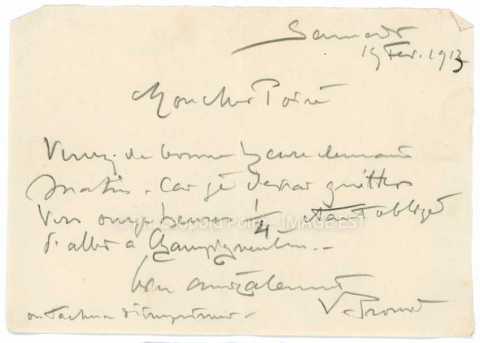 Samedi
15 Fev. 1913
Mon cher Poiré
Venez de bonne heure demain
matin. car je devrai quitter
vers onze heures 1/4 étant obligé
d'aller à Champigneulles. _
bien amicalement
V. Prouvé
on tachera d'imprimer _
IMAGE'EST